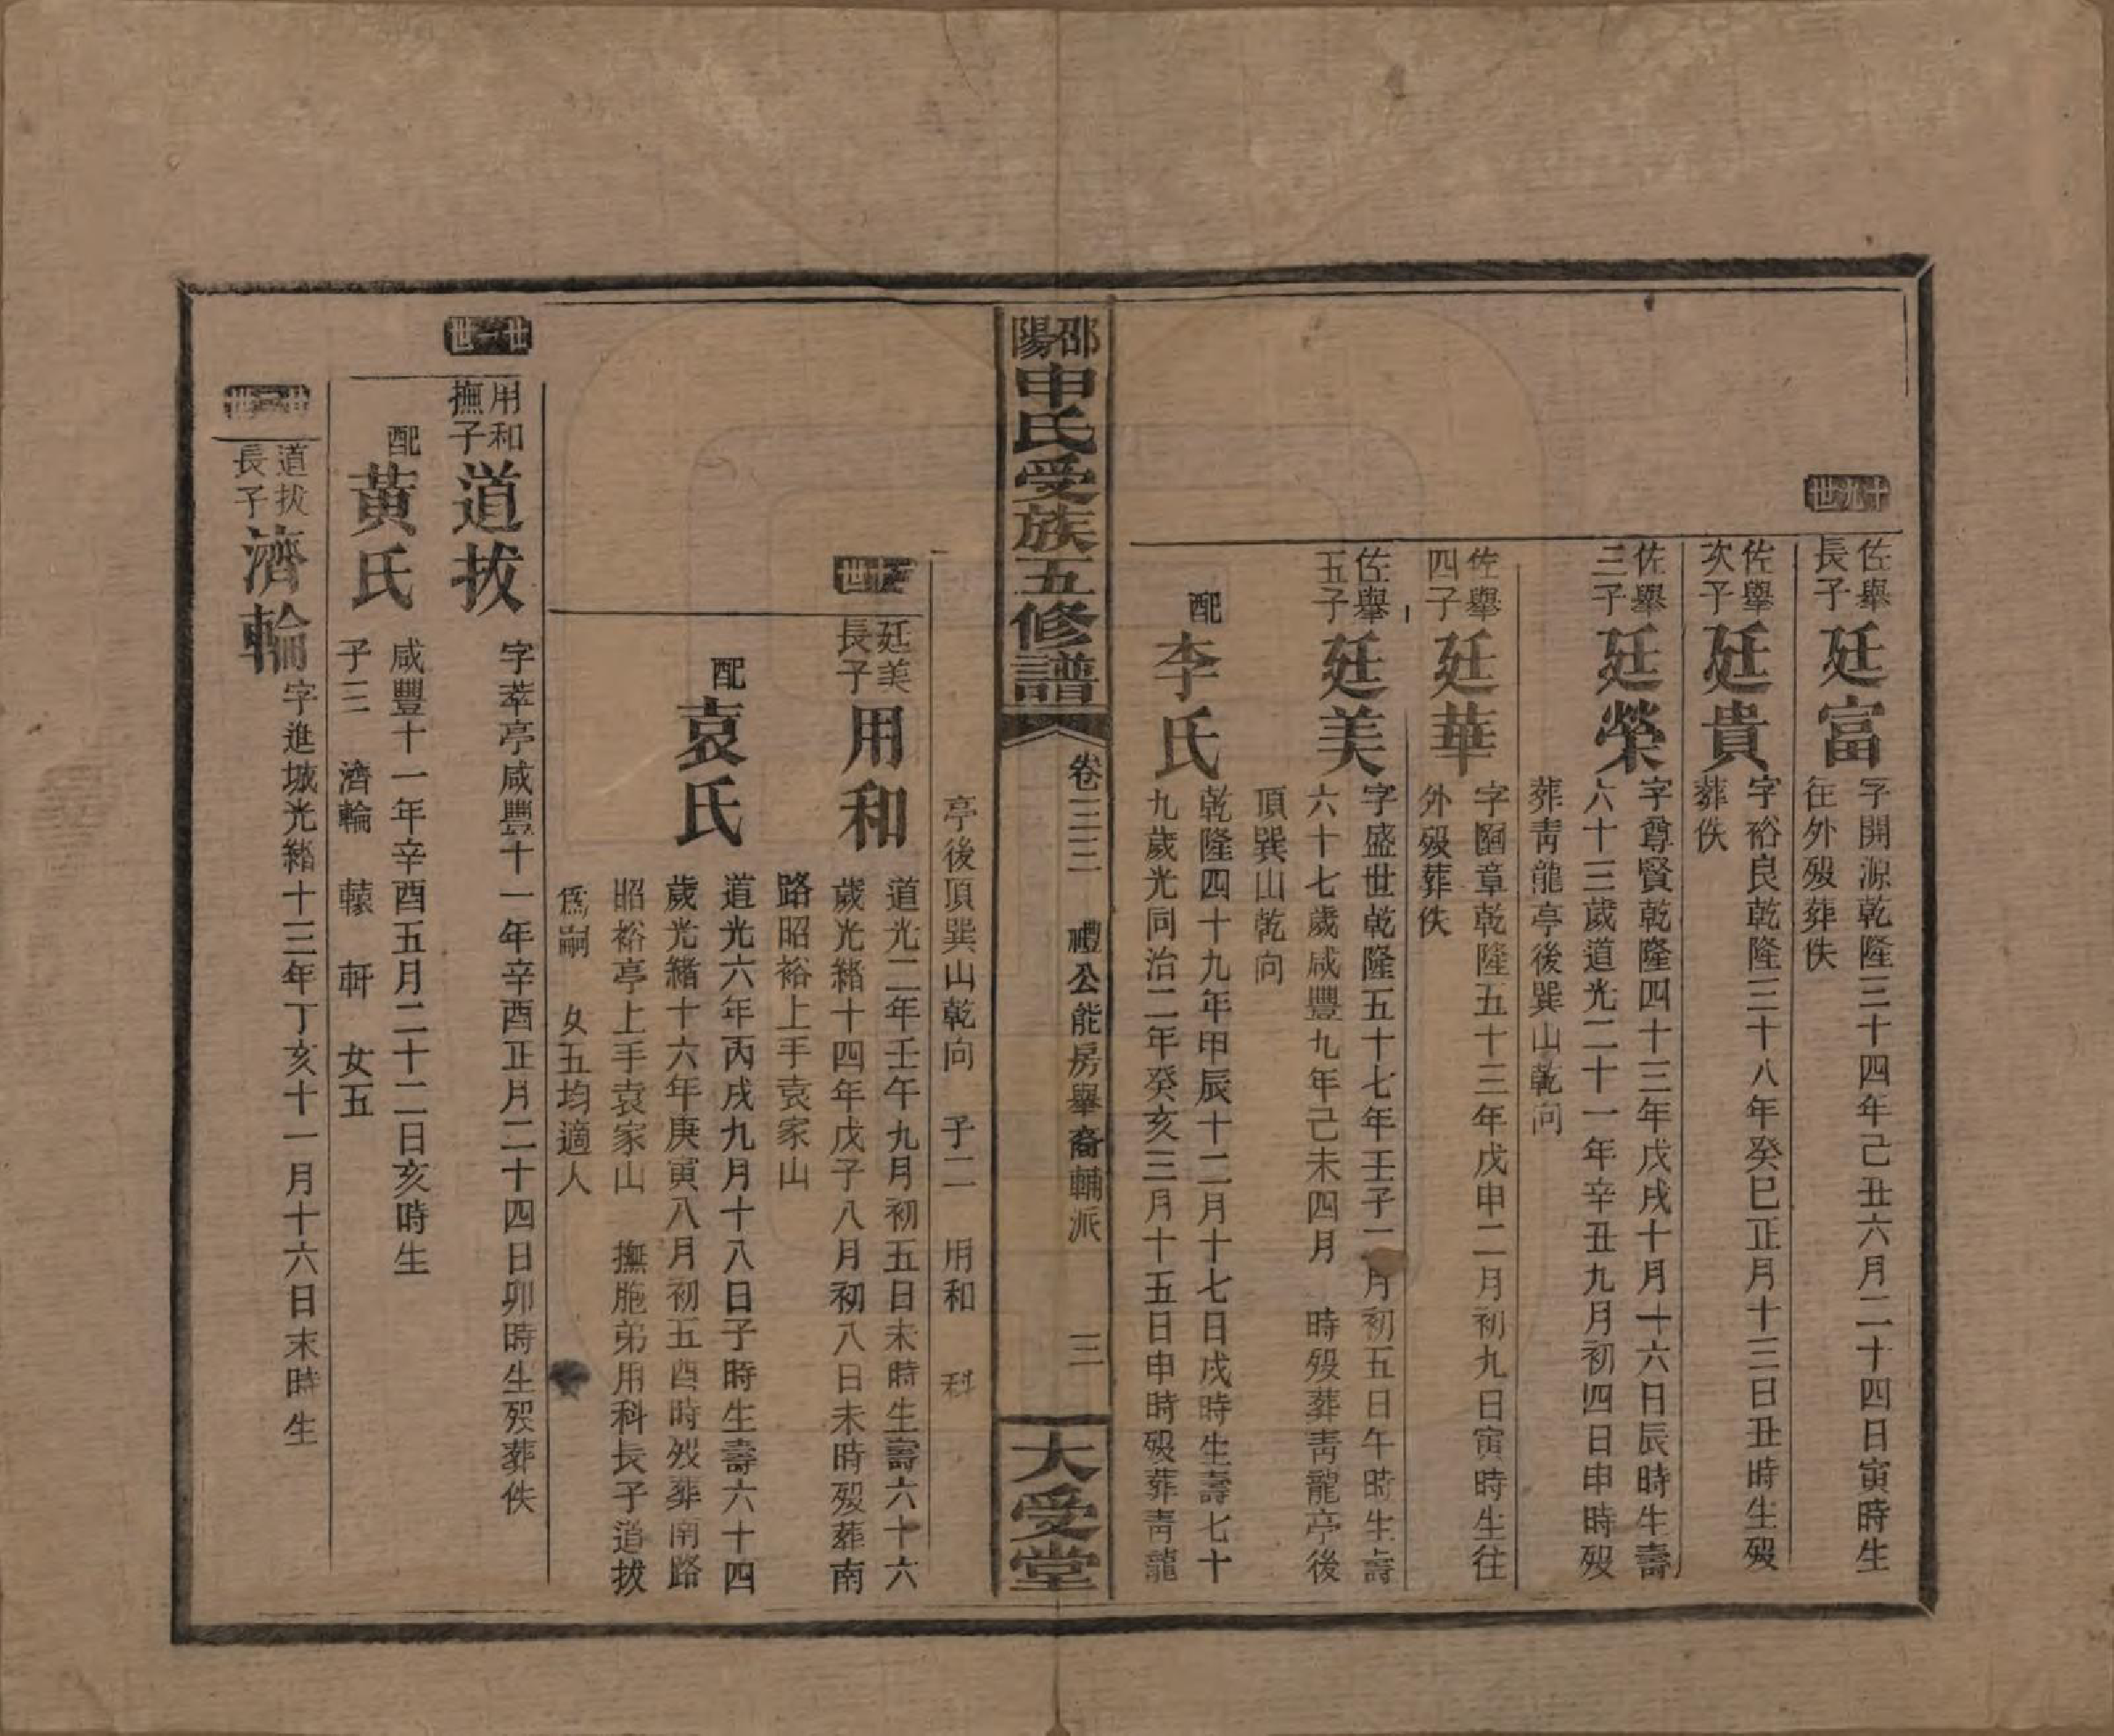 十九世
佐舉長子
廷富
字開源乾隆三十四年己丑六月二十四日寅時生
往外歿葬佚
佐舉次子
廷貴
字裕良乾隆三十八年癸巳正月十三日丑時生歿
葬佚
佐舉三子
廷榮
字尊賢乾隆四十三年戊戌十月十六日辰時生壽
六十三歲道光二十一年辛丑九月初四日申時歿
葬靑龍亭後巽山乾向
佐舉四子
廷華
字國章乾隆五十三年戊申二月初九日寅時生往
外歿葬佚
佐舉五子
廷美
字盛世乾隆五十七年壬子二月初五日午時生壽
六十七歲咸豐九年己未四月 時歿葬靑龍亭後
頂巽山乾向
配
李氏
乾隆四十九年甲辰十二月十七日戌時生壽七十
九歲光同治二年癸亥三月十五日申時歿葬靑龍
邵陽申氏受族五修譜
卷三三 禮公能房舉裔輔派
三
大受堂
亭後頂巽山乾向 子二 用和 科
二十世
廷美長子
用和
道光二年壬午九月初五日未時生壽六十六
歲光緒十四年戊子八月初八日未時歿葬南
路昭裕上手袁家山
配
袁氏
道光六年丙戌九月十八日子時生壽六十四
歲光緒十六年庚寅八月初五酉時歿葬南路
昭裕亭上手袁家山 撫胞弟用科長子道拔
爲嗣 女五均適人
廿一世
用和撫子
道拔
字萃亭咸豐十一年辛酉正月二十四日卯時生歿葬佚
配
黃氏
咸豐十一年辛酉五月二十二日亥時生
子三 濟輪 轅 軒 女五
廿二世
道拔長子
濟輪
字進城光緒十三年丁亥十一月十六日未時生